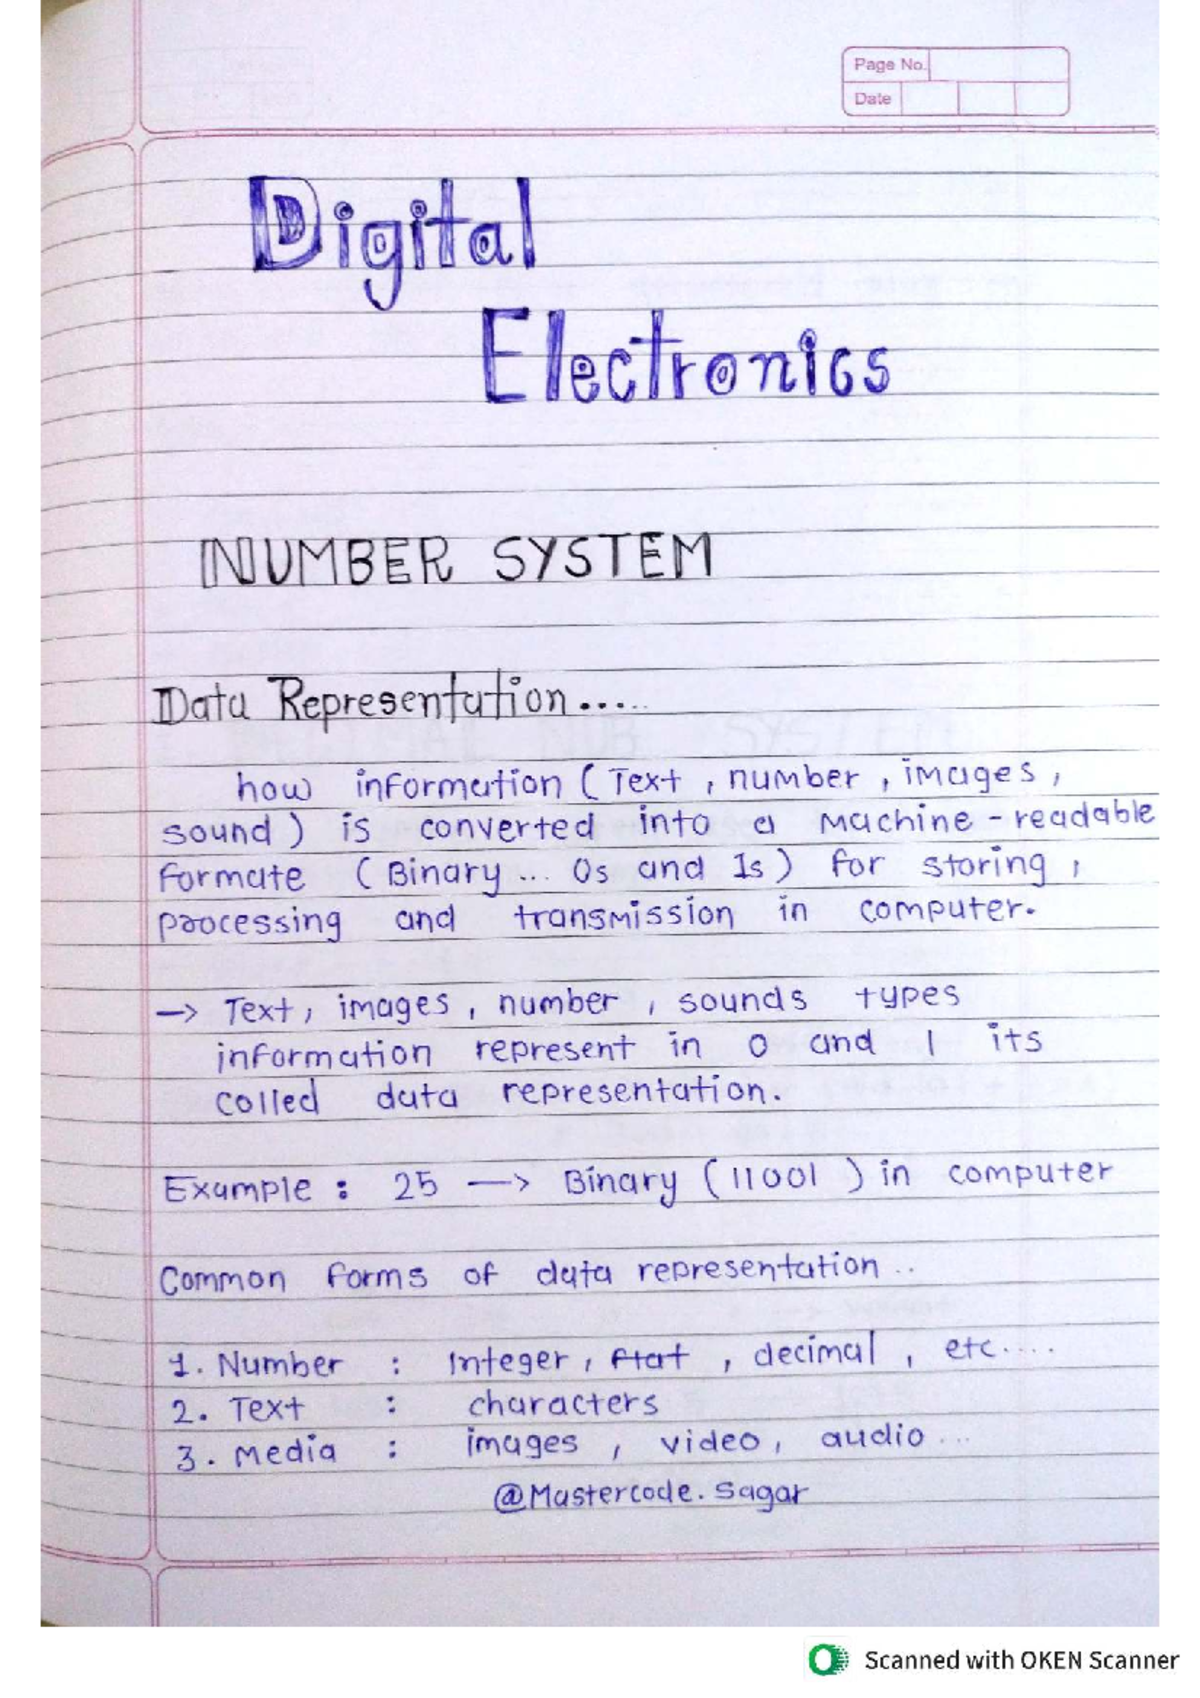 Page No.
Date
Digital
Electronics
NUMBER SYSTEM
Data Representation......
how information (Text, number, images,
sound) is converted into a Machine-readable
formate (Binary... 0s and 1s) for storing,
processing and transmission in computer.
-> Text, images, number, sounds types
information represent in 0 and 1 its
called data representation.
Example : 25 —> Binary (11001) in computer
Common forms of data representation..
1. Number : Integer, , decimal, etc.....
2. Text : characters
3. Media : images, video, audio...
@Mastercode.Sagar
Scanned with OKEN Scanner